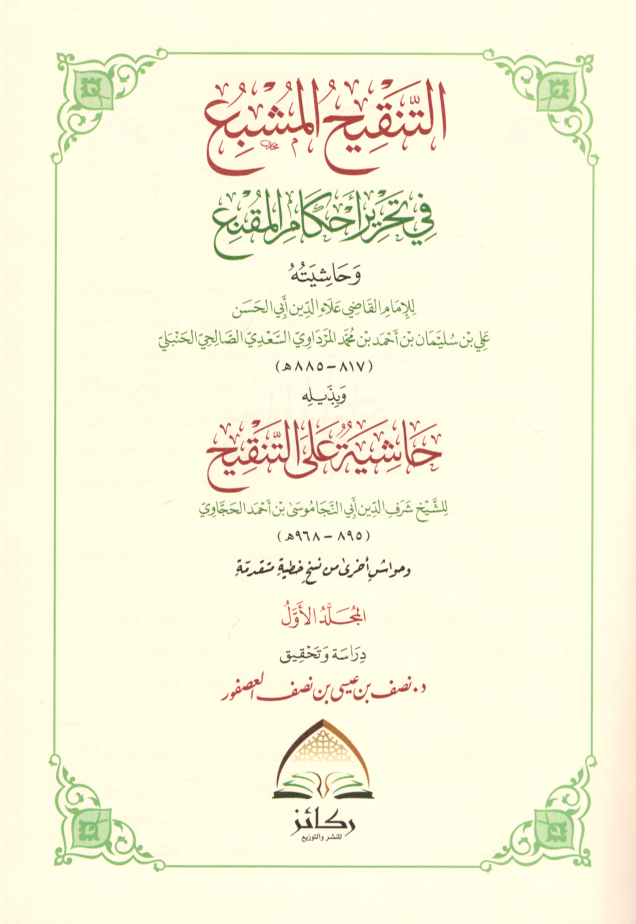 التَّنقِيحُ المُشْبِعُ
فِي تَحْرِيرِ أَحْكَامِ المُقْنِعِ
وَحَاشِيَتُهُ
لِلإِمَامِ القَاضِي عَلَاءِ الدِّينِ أَبِي الحَسَنِ
عَلِيِّ بْنِ سُلَيْمَانَ بْنِ أَحْمَدَ بْنِ مُحَمَّدٍ المَرْدَاوِيِّ السَّعْدِيِّ الصَّالِحِيِّ الحَنْبَلِيِّ
(٨١٧ - ٨٨٥ هـ)
وَبِذَيلِهِ
حَاشِيَةٌ عَلَى التَّنقِيحِ
لِلشَّيْخِ شَرَفِ الدِّينِ أَبِي النَّجَا مُوسَى بْنِ أَحْمَدَ الحَجَّاوِيِّ
(٨٩٥ - ٩٦٨ هـ)
وحواشٍ أخرى من نسخٍ خطيةٍ متقدمةٍ
المُجَلَّدُ الأَوَّلُ
دِرَاسَة وَتَحْقِيق
د. نصف بن عيسى بن نصف العصفور
ركائز
للنشر والتوزيع